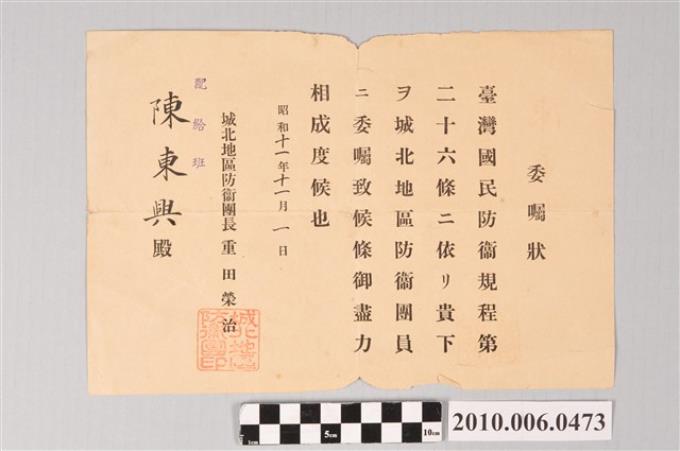 委嘱狀
臺灣國民防衞規程第
二十六條ニ依リ貴下
ヲ城北地區防衞團員
ニ委嘱致候條御盡力
相成度候也
昭和十一年十一月一日
城北地區防衞團長 重田榮治
配給班
陳東興殿
城北地區
防衞團印
1cm 5cm 10cm
2010.006.0473